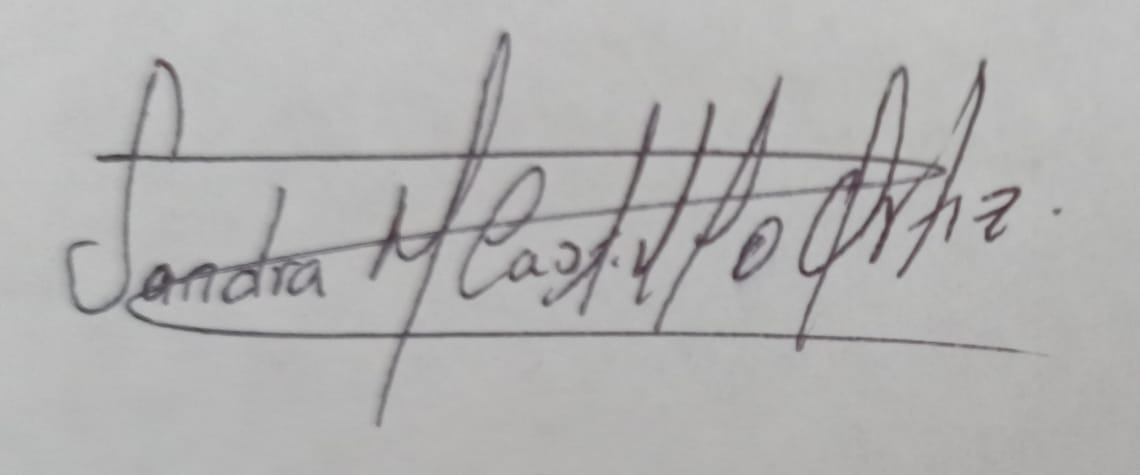 Sandra M Castillo Ortiz.